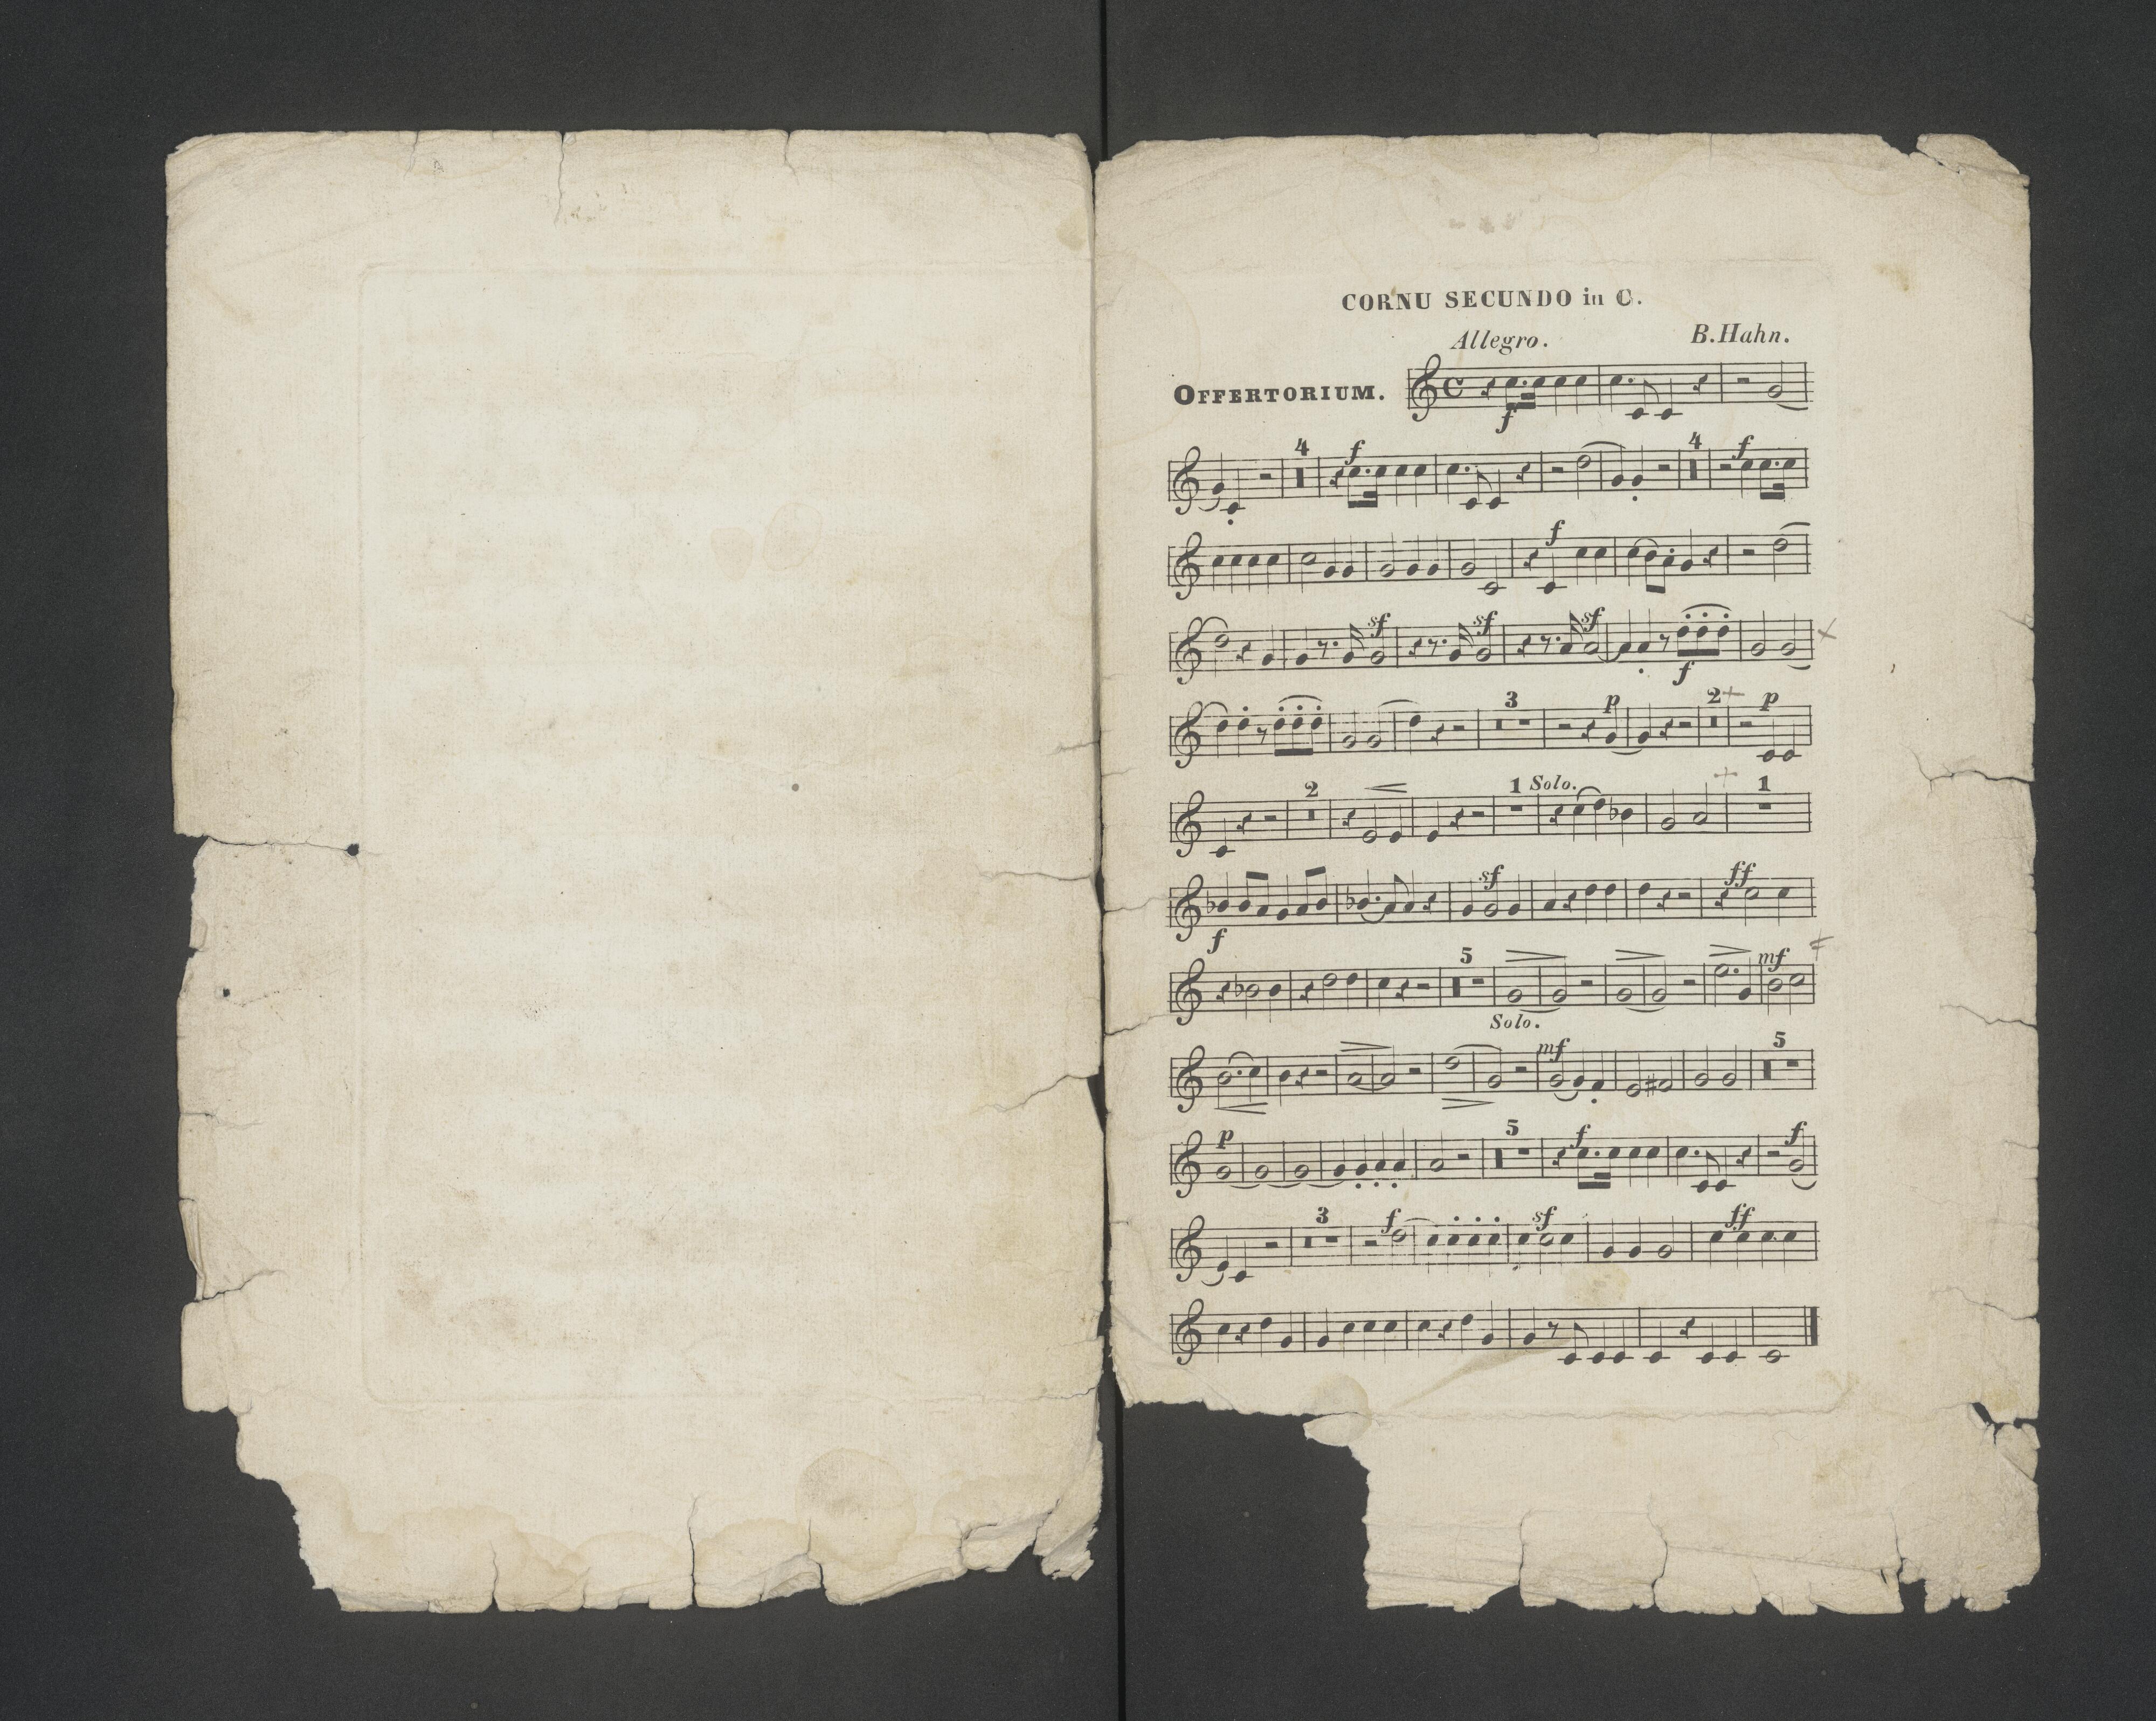 CORNU SECUNDO in C.
Allegro. B. Hahn.
OFFERTORIUM.
f
4 f 4 f
f
sf sf sf f
3 p 2 p
2 1 Solo. 1
f sf ff
5 mf
Solo.
mf 5
p 5 f f
3 f sf ff